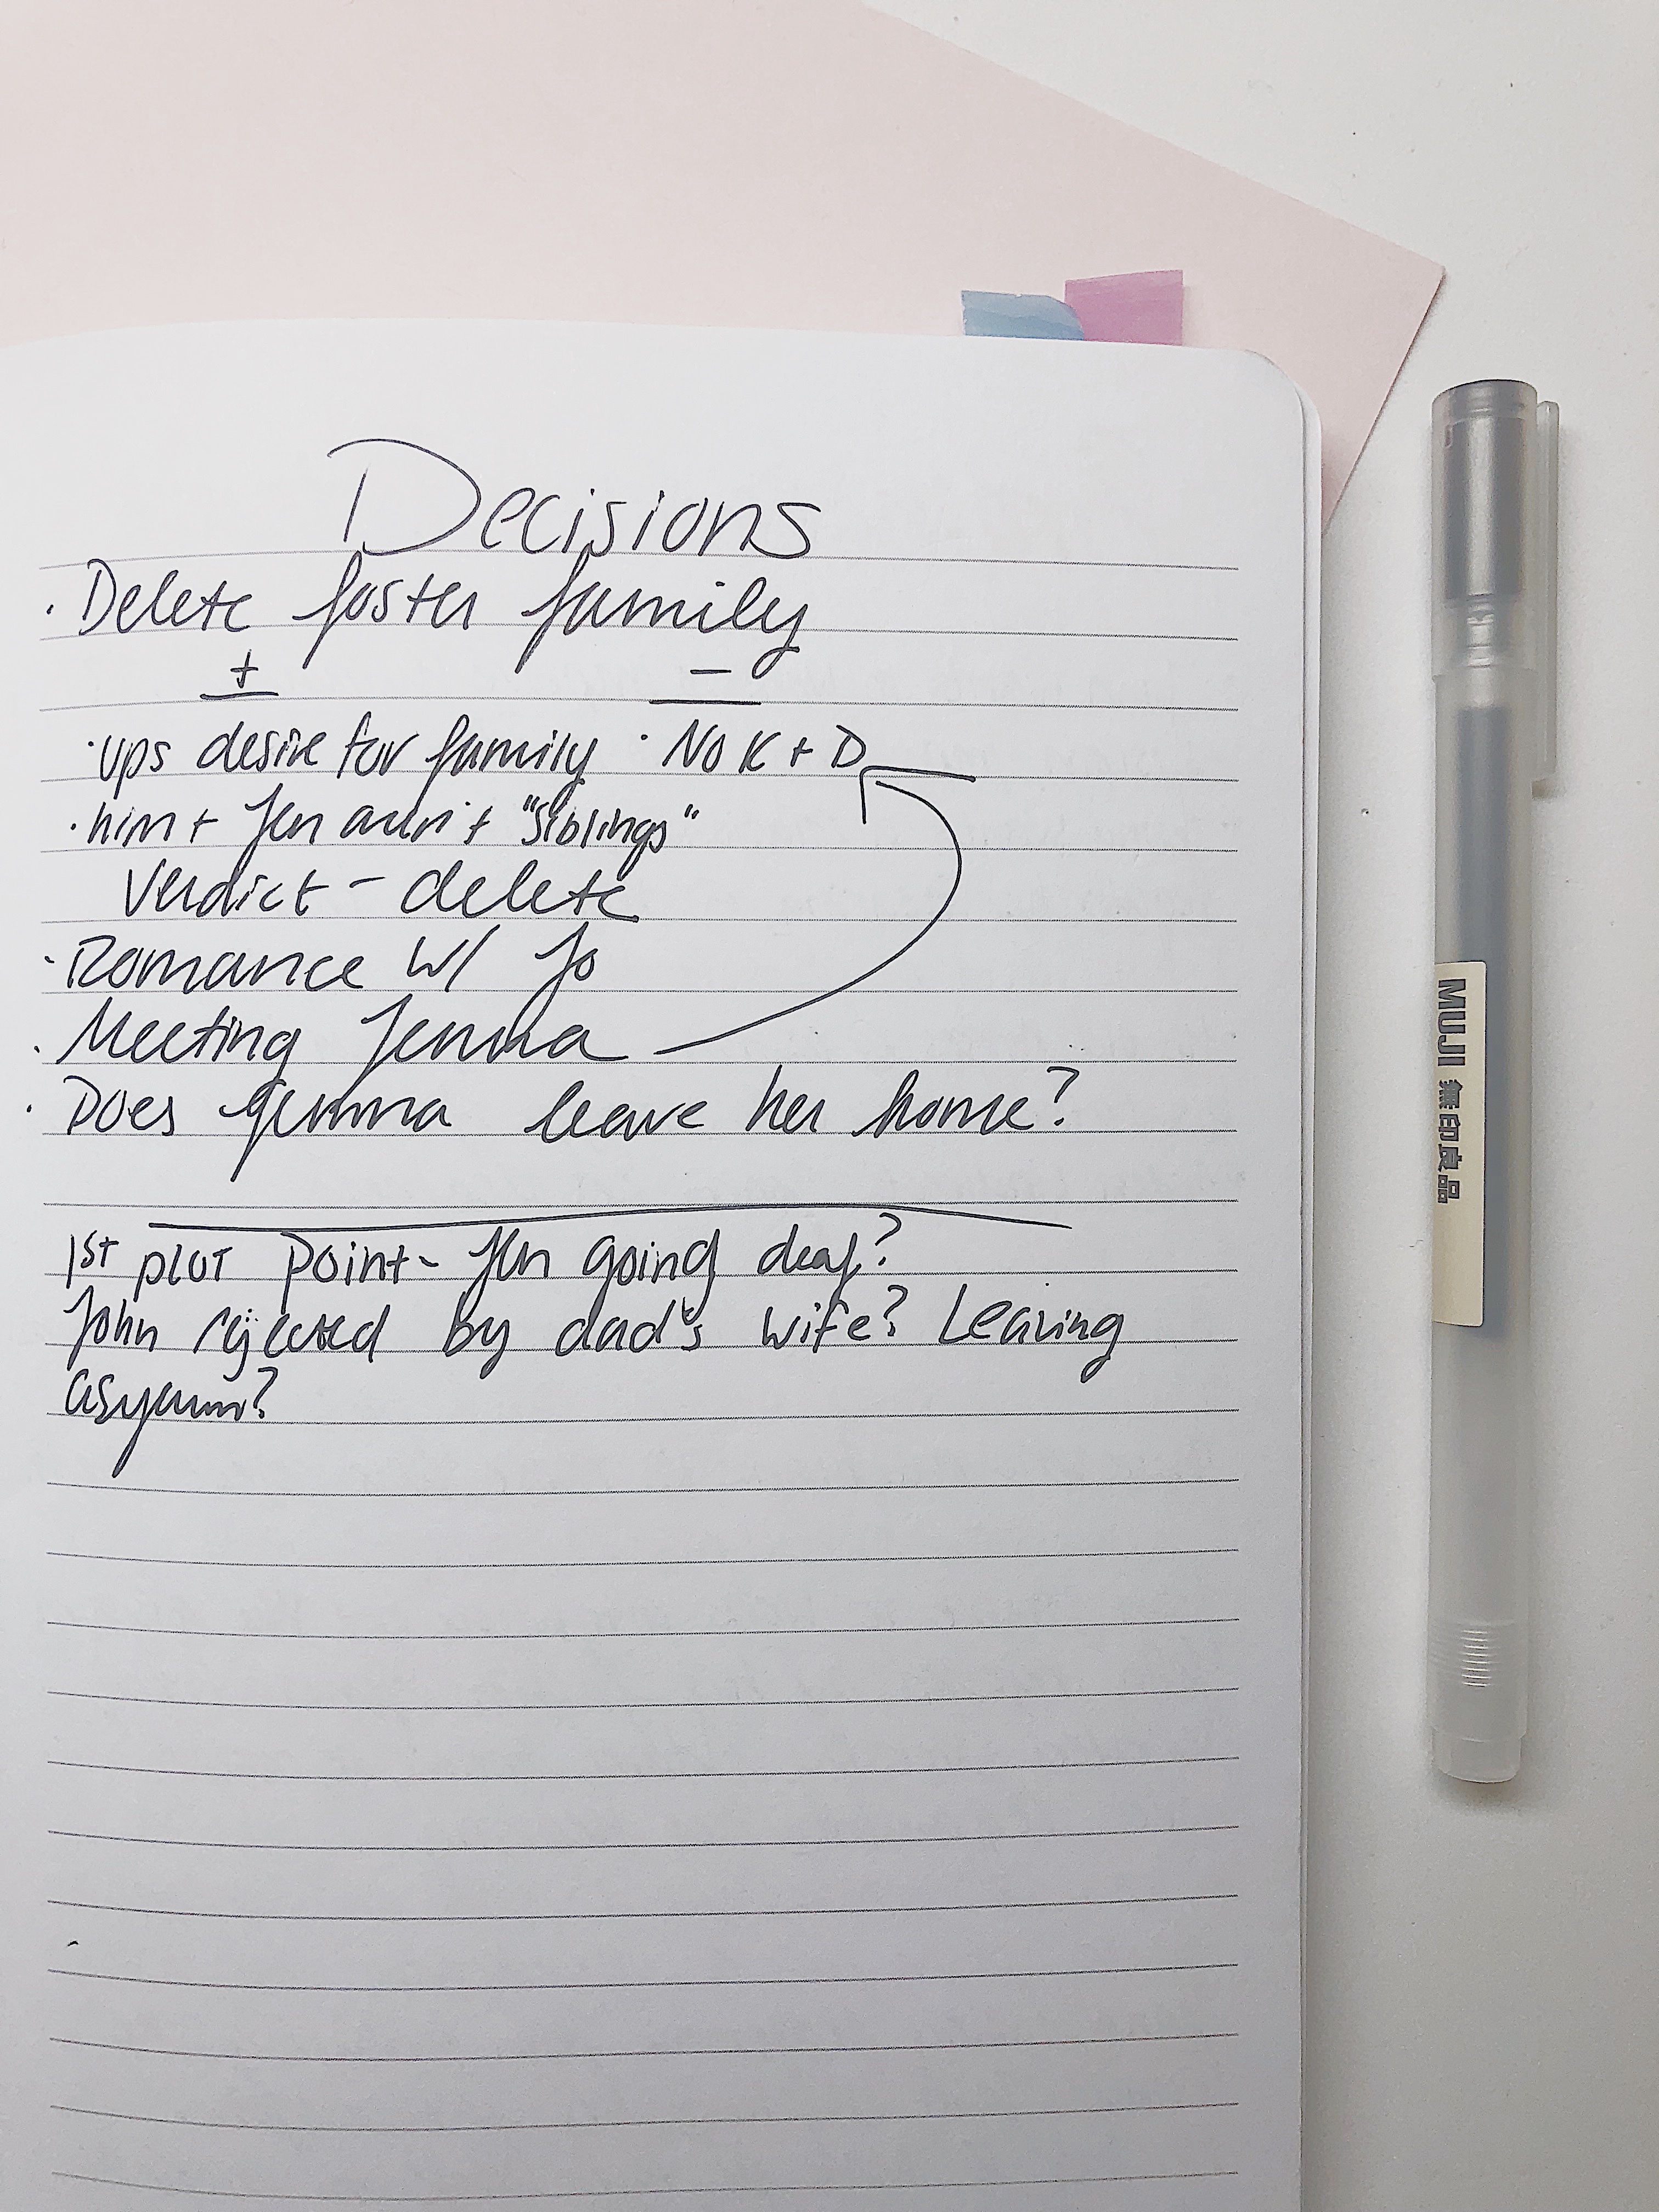 Decisions
· Delete foster family
+ –
· ups desire for family · No K + D
· him + Jen aren't "siblings"
Verdict – delete
· Romance w/ Jo
· Meeting Jenna
· Does Jenna leave her home?
1st plot point - Jen going deaf?
John rejected by dad's wife? Leaving
asylum?
MUJI 無印良品